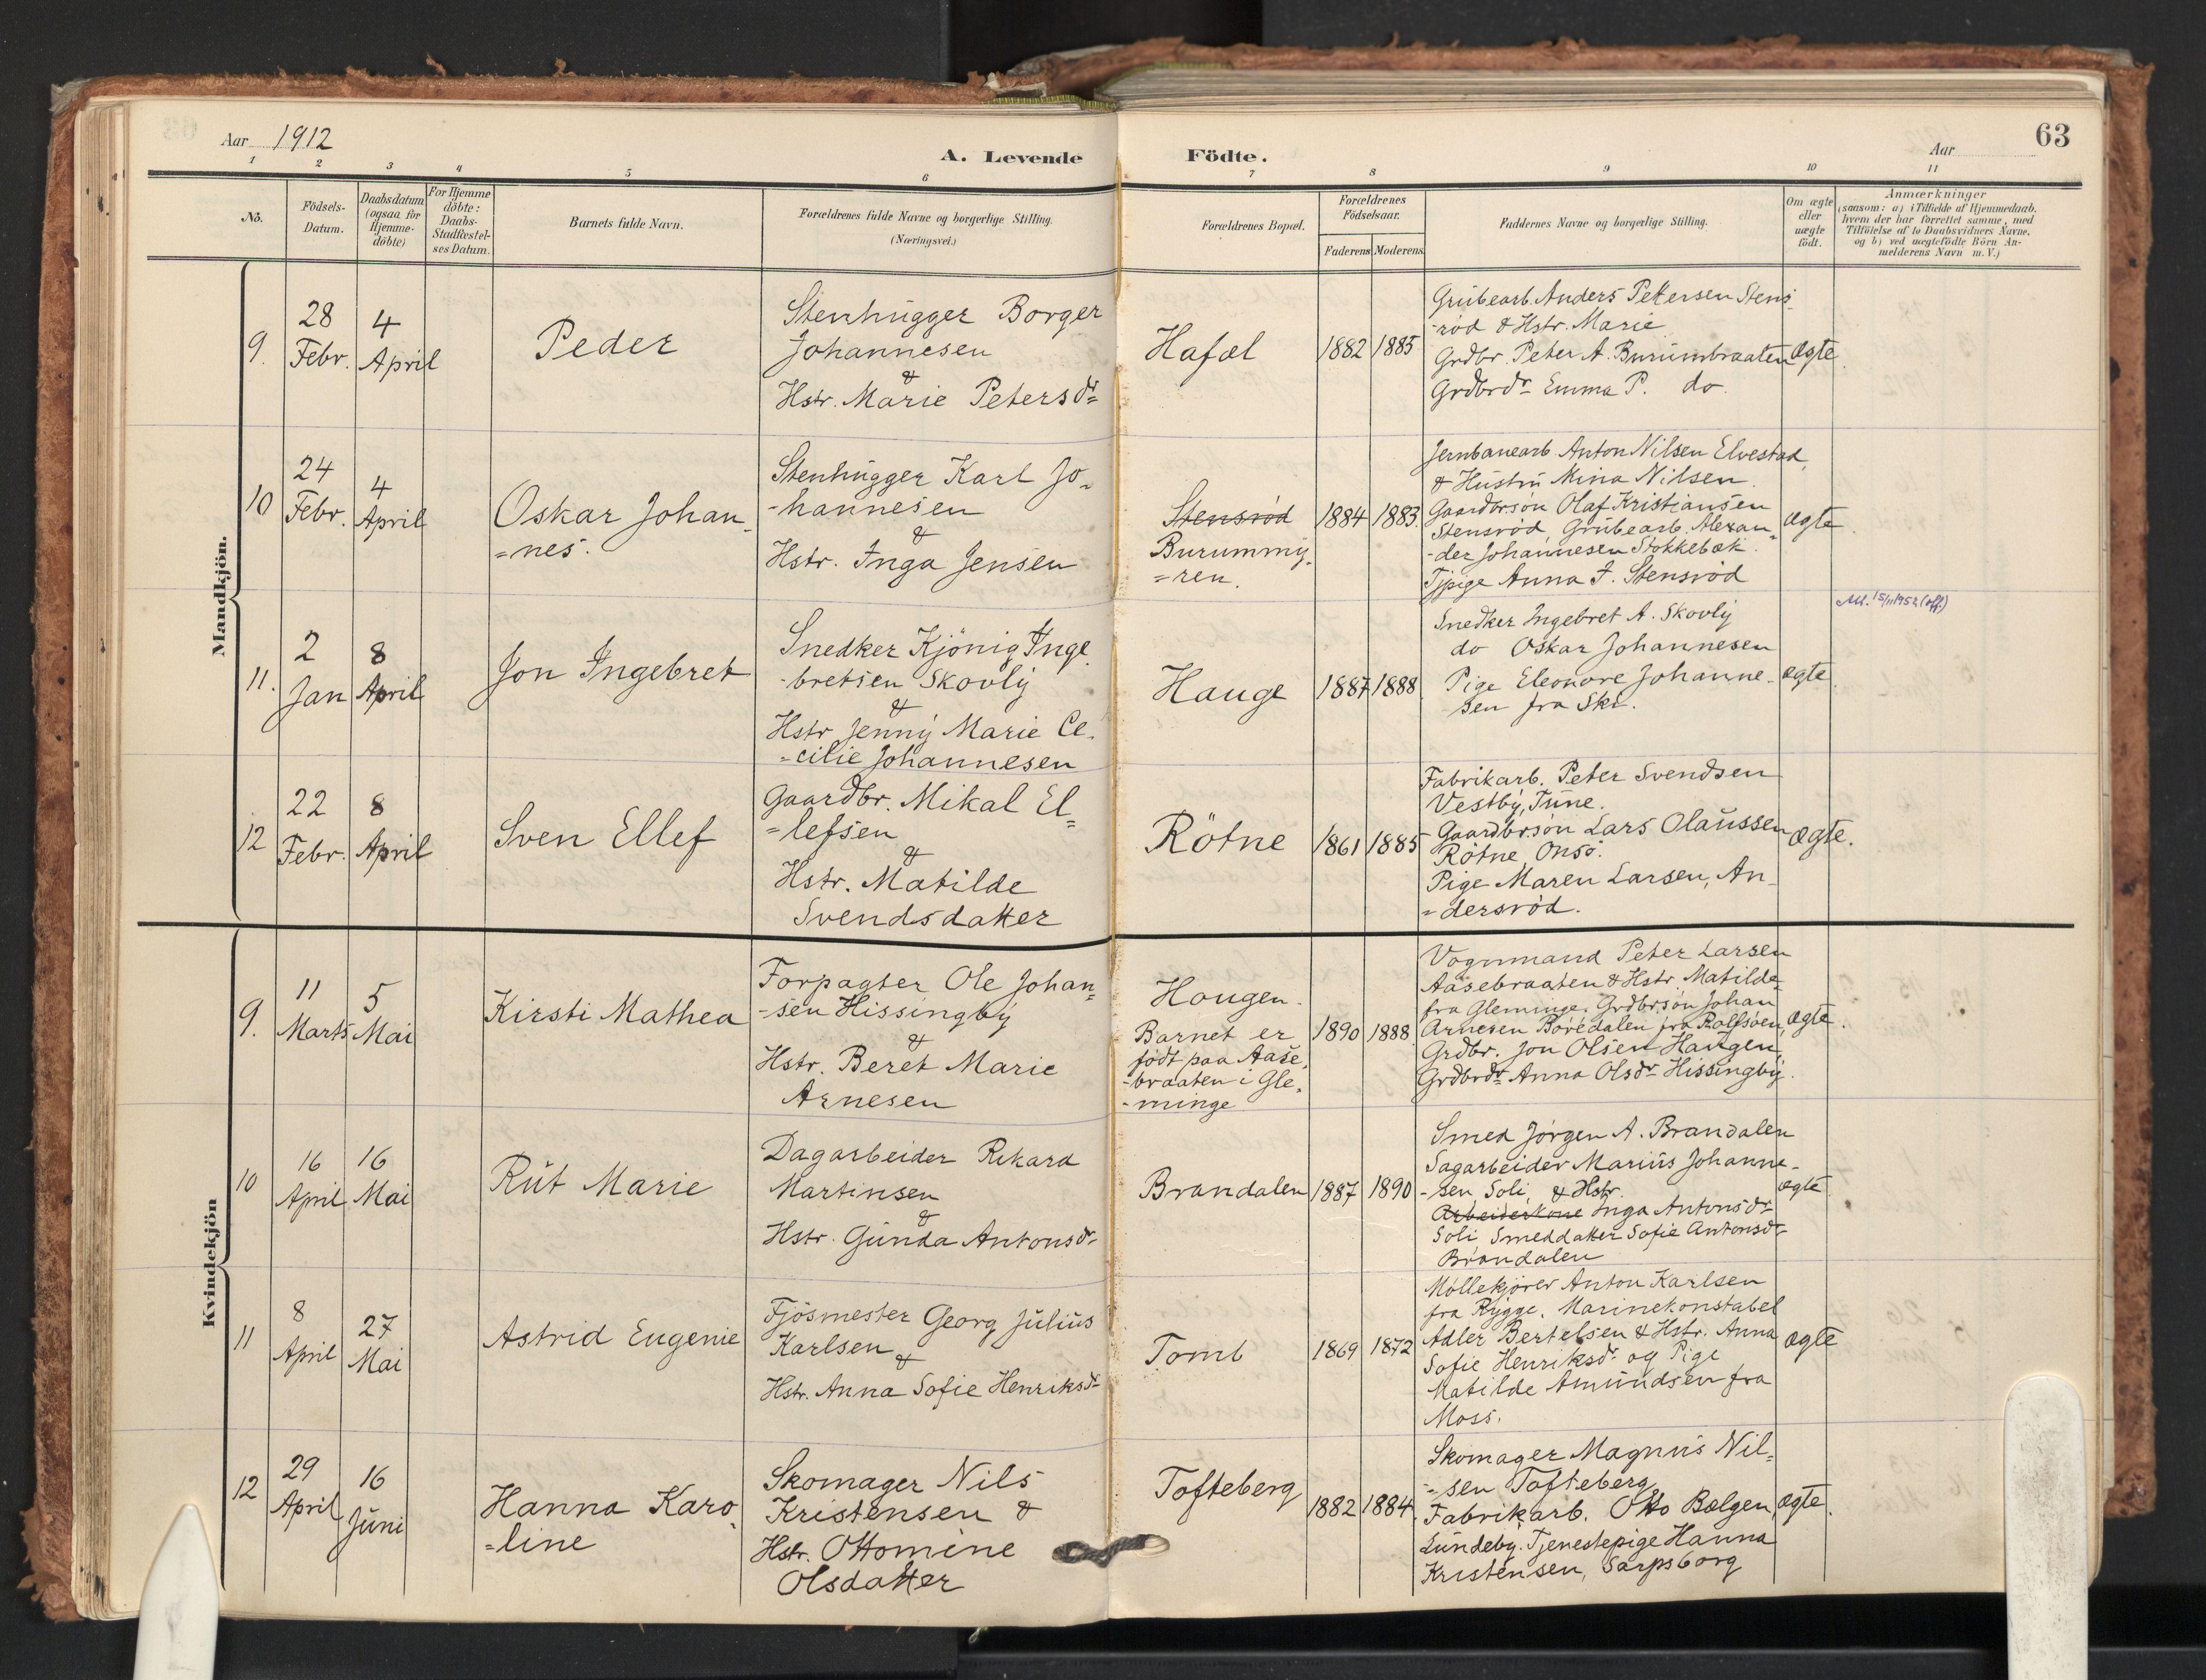 Aar 1912
A. Levende Födte.
Aar
63
1 2 3 4 5 6 7 8 9 10 11
No.
Födsels-
Datum.
Daabsdatum
(ogsaa for
Hjemme-
döbte)
For Hjemme
döbte:
Daabs-
Stadfæstel-
ses Datum.
Barnets fulde Navn.
Forældrenes fulde Navne og borgerlige Stilling.
(Næringsvei.)
Forældrenes Bopæl.
Forældrenes
Födselsaar.
Faderens Moderens
Faddernes Navne og borgerlige Stilling.
Om ægte
eller
uægte
födt.
Anmærkninger
(saasom: a) i Tilfælde af Hjemmedaab.
hvem der har forrettet samme, med
Tilföielse af to Daabsvidners Navne.
og b) ved uægtefödte Börn An-
melderens Navn m.V.)
Mandkjön.
9.
28
Febr.
4
April
Peder
Stenhugger Borger
Johannesen
&
Hstr. Marie Petersdr
Hafæl
1882 1885
Grubearb. Anders Pettersen Stens
-rød & Hstr. Marie
Grdbr. Peter A. Burumbraaten
Grdbrdr Emma P. do.
ægte.
10
24
Febr.
4
April
Oskar Johan-
=nes.
Stenhugger Karl Jo-
-hannesen
&
Hstr. Inga Jensen
Stensrød
Burummy-
=ren.
1884 1883.
Jernbanearb. Anton Nilsen Elvestad,
& Hustru Mina Nilsen.
Gaardbrsøn Olaf Kristiansen
Stensrød, Grubearb. Alexan-
-der Johannesen Stokkebæk.
Tjpige Anna J. Stensrød
ægte.
11.
2
Jan
8
April
Jon Ingebret
Snedker Kjönig Inge
-bretsen Skovly
&
Hstr Jenny Marie Ce-
=cilie Johannesen
Hauge
1887 1888
Snedker Ingebret A. Skovly
do Oskar Johannesen
Pige Eleonore Johanne-
sen fra Ski.
ægte
15/11 1952 (off.)
12
22
Febr.
8
April
Sven Ellef
Gaardbr. Mikal El=
=lefsen
&
Hstr. Matilde
Svendsdatter
Rötne
1861 1885
Fabrikarb. Peter Svendsen
Vestby, Tune.
Gaardbrsøn Lars Olaussen
Rötne, Onsö.
Pige Maren Larsen, An-
=dersrød.
ægte.
Kvindekjön
9.
11
Marts
5
Mai
Kirsti Mathea
Forpagter Ole Johan=
-sen Hissingby
&
Hstr. Beret Marie
Arnesen
Hougen.
Barnet er
födt paa Aase-
-braaten i Gle-
-minge
1890 1888
Vognmand Peter Larsen
Aasebraaten & Hstr. Matilde
fra Gleminge. Grdbrsøn Johan
Arnesen Boredalen fra Rolfsøen,
Grdbr. Jon Olsen Haugen,
Grdbrdr Anna Olsdr Hissingby.
ægte.
10
16
April
16
Mai
Rut Marie
Dagarbeider Rikard
Martinsen
&
Hstr. Gunda Antonsdr
Brandalen
1887 1890
Smed Jörgen A. Brandalen
Sagarbeider Marius Johanne-
-sen Soli, & Hstr.
Arbeiderkone Inga Antonsdr
Soli Smeddatter Sofie Antonsdr
Brandalen
ægte
11
8
April
27
Mai
Astrid Eugenie
Fjösmester Georg Julius
Karlsen
&
Hstr. Anna Sofie Henriksdr
Tomb
1869 1872
Møllekjører Anton Karlsen
fra Rygge. Marinekonstabel
Adler Bertelsen & Hstr. Anna
Sofie Henriksdr. og Pige
Matilde Amundsen fra
Moss.
ægte
12
29
April
16
Juni
Hanna Karo-
=line
Skomager Nils
Kristensen &
Hstr. Ottomine
Olsdatter
Tofteberg
1882 1884.
Skomager Magnus Nil=
=sen Tofteberg
Fabrikarb. Otto Bølgen,
Lundeby. Tjenestepige Hanna
Kristensen, Sarpsborg
ægte.